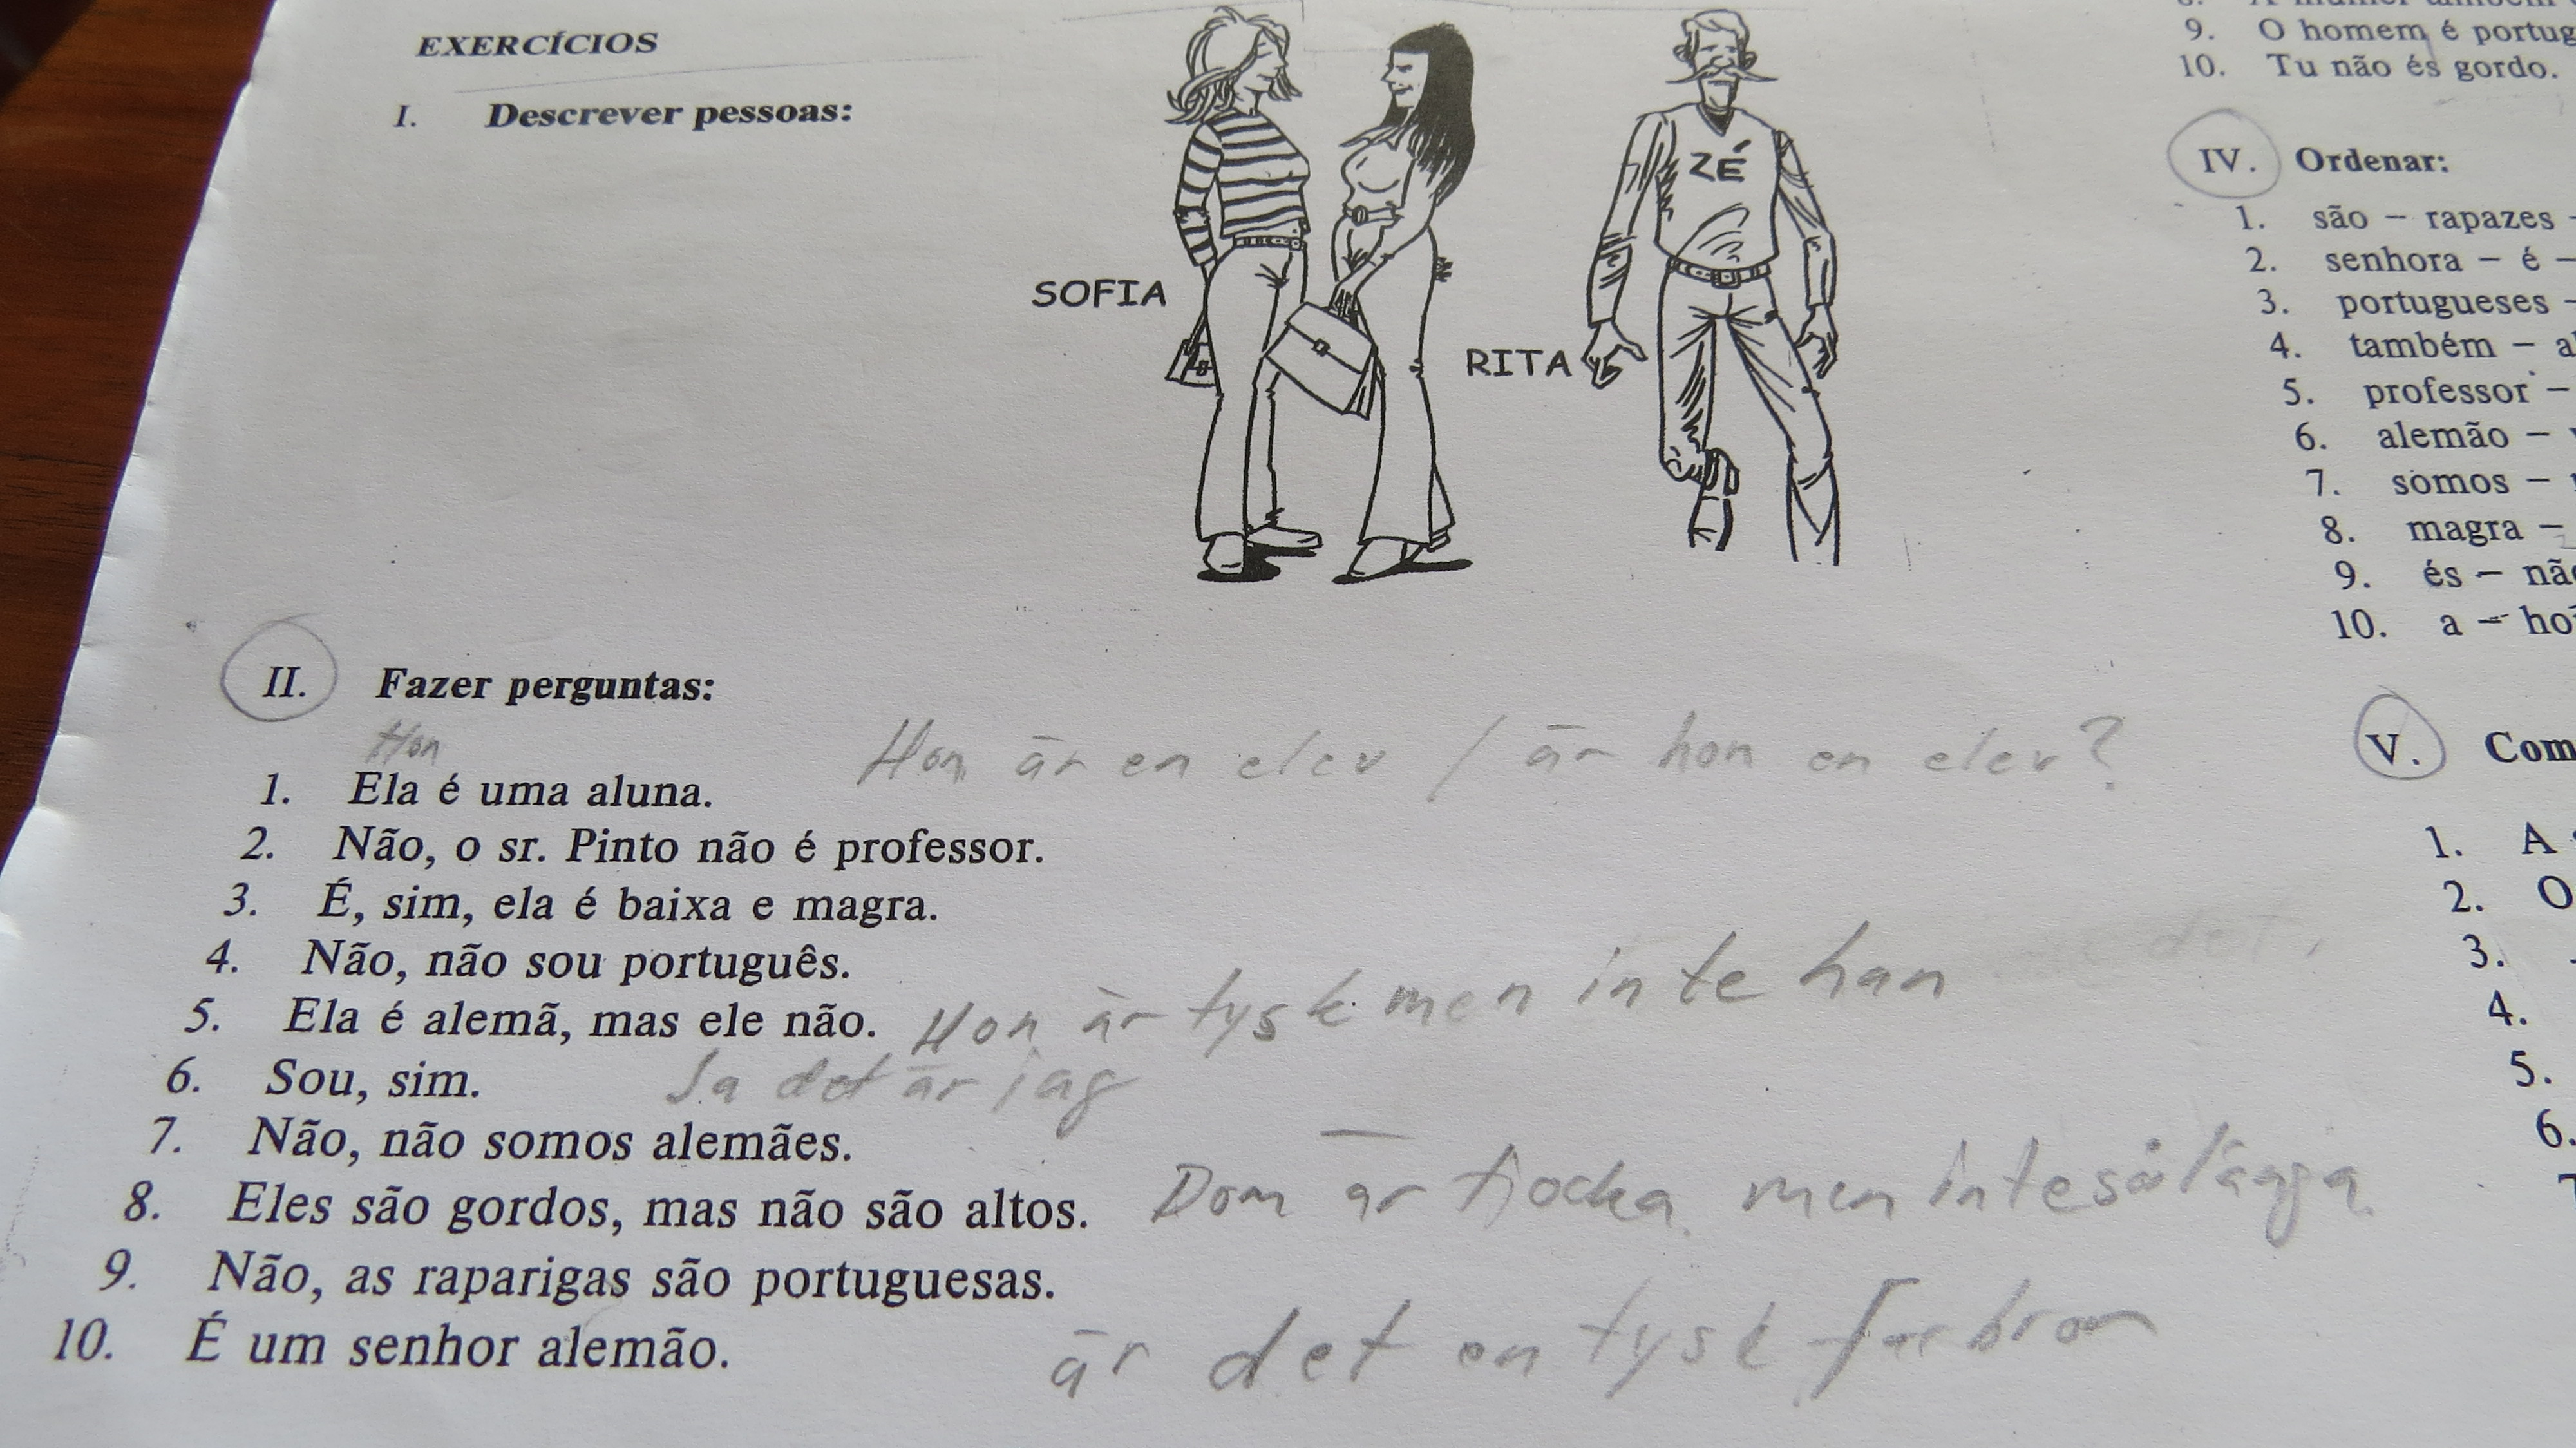 EXERCÍCIOS
I. Descrever pessoas:
SOFIA
RITA
ZÉ
II. Fazer perguntas:
Hon
Hon är en elev / är hon en elev?
1. Ela é uma aluna.
2. Não, o sr. Pinto não é professor.
3. É, sim, ela é baixa e magra.
4. Não, não sou português.
5. Ela é alemã, mas ele não. Hon är tysk men inte han
6. Sou, sim. Ja det är jag
7. Não, não somos alemães.
8. Eles são gordos, mas não são altos. Dom är tjocka men inte så långa
9. Não, as raparigas são portuguesas.
10. É um senhor alemão. är det en tysk farbror
9. O homem é
10. Tu não és gordo.
IV. Ordenar:
1. são – rapazes –
2. senhora – é –
3. portugueses –
4. também –
5. professor –
6. alemão –
7. somos –
8. magra –
9. és –
10. a –
V.
1. A
2. O
3.
4.
5.
6.